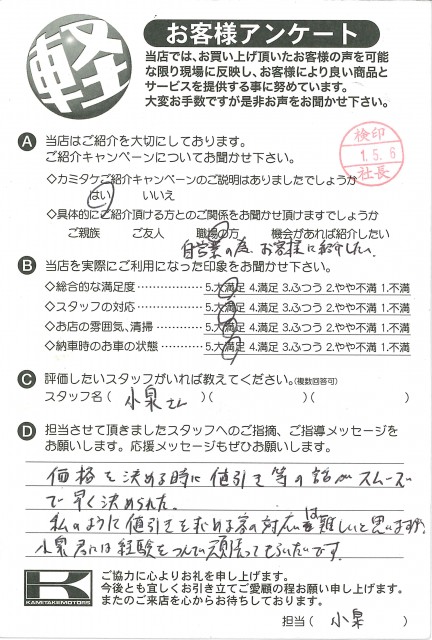 軽
お客様アンケート
当店では、お買い上げ頂いたお客様の声を可能
な限り現場に反映し、お客様により良い商品と
サービスを提供する事に努めています。
大変お手数ですが是非お声をお聞かせ下さい。
検印
1.5.6
社長
A 当店はご紹介を大切にしております。
ご紹介キャンペーンについてお聞かせ下さい。
◇カミタケご紹介キャンペーンのご説明はありましたでしょうか
はい いいえ
◇具体的にご紹介頂ける方とのご関係をお聞かせ頂けますでしょうか
ご親族 ご友人 職場の方 機会があれば紹介したい
自営業の為 お客様に紹介したい。
B 当店を実際にご利用になった印象をお聞かせ下さい。
◇総合的な満足度 5.大満足 4.満足 3.ふつう 2.やや不満 1.不満
◇スタッフの対応 5.大満足 4.満足 3.ふつう 2.やや不満 1.不満
◇お店の雰囲気、清掃 5.大満足 4.満足 3.ふつう 2.やや不満 1.不満
◇納車時のお車の状態 5.大満足 4.満足 3.ふつう 2.やや不満 1.不満
C 評価したいスタッフがいれば教えてください。(複数回答可)
スタッフ名( 小泉さん )( )( )
D 担当させて頂きましたスタッフへのご指摘、ご指導メッセージを
お願いします。応援メッセージもぜひお願いします。
価格を決める時に値引き等の話がスムーズ
で早く決められた。
私のように値引きを求める客の対応は難しいと思いますが、
小泉君には経験をつんで頑張ってもらいたいです。
K
KAMITAKEMOTORS
ご協力に心よりお礼を申し上げます。
今後とも宜しくお引き立てご愛顧の程お願い申し上げます。
またのご来店を心からお待ちしております。
担当( 小泉 )